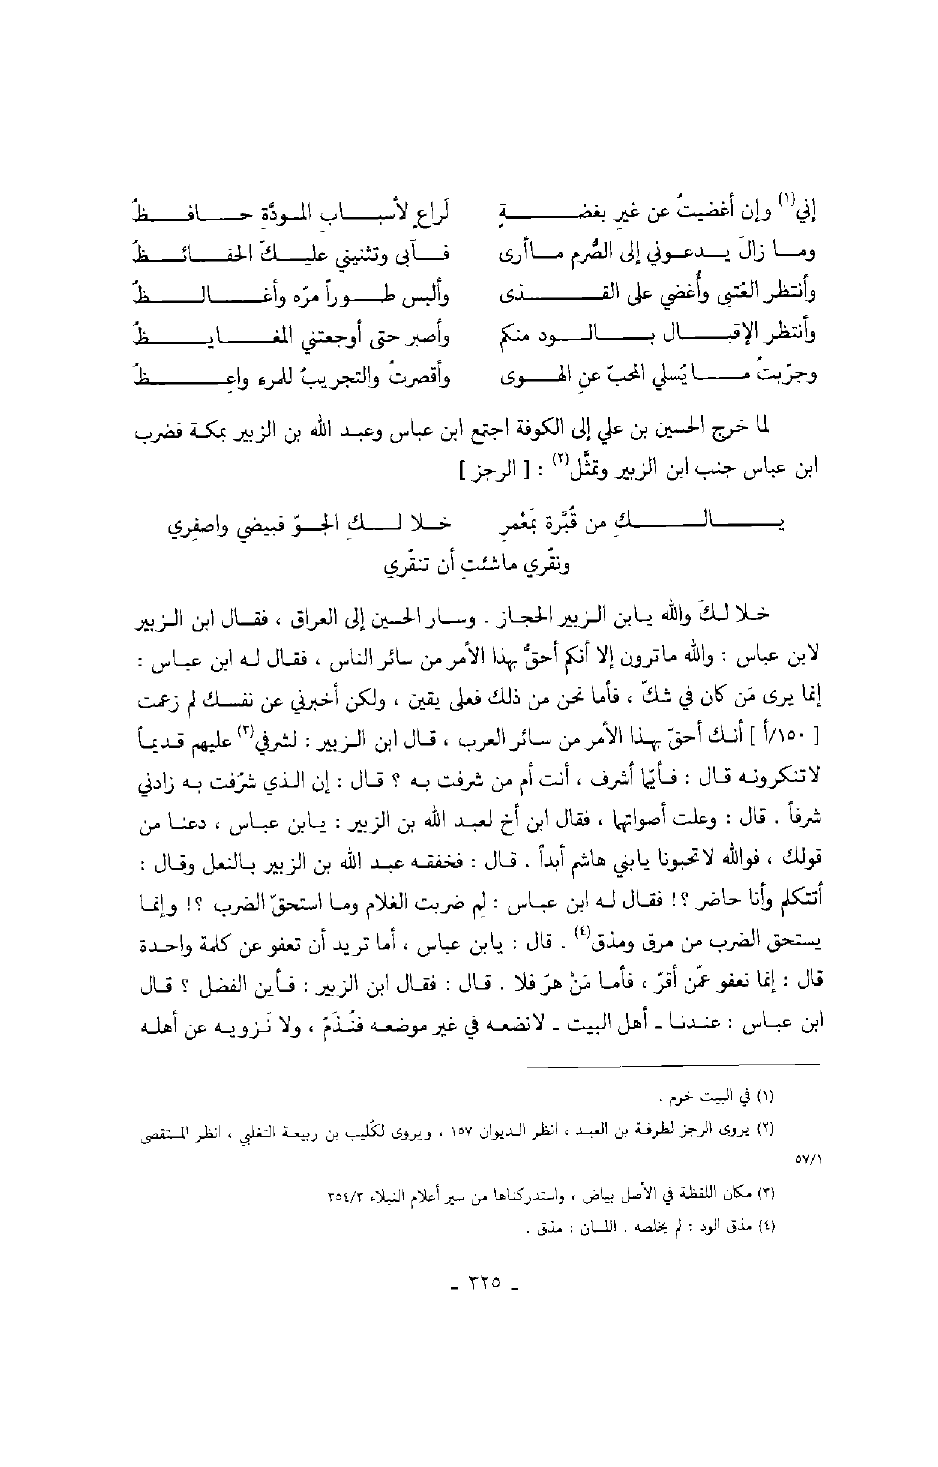 إني(١) وإن أغضيتُ عن غيرِ بغضةٍ لَراعٍ لأسبابِ المودّةِ حافظُ
وما زالَ يدعوني إلى الصُّرم ماأرى فآبى وتثنيني عليكَ الحفائظُ
وأنتظر العُتبى وأُغضي على القذى وألبس طوراً مرّه وأغالظُ
وأنتظر الإقبال بالود منكم وأصبر حتى أوجعتني المغايظُ
وجرّبتُ مايُسلي المحبّ عن الهوى وأقصرتُ والتجريبُ للمرء واعظُ
لما خرج الحسين بن علي إلى الكوفة اجتمع ابن عباس وعبد الله بن الزبير بمكة فضرب
ابن عباس جنب ابن الزبير وتمثَّل(٢) : [ الرجز ]
يالكِ من قُبَّرة بمَعْمرِ خلا لكِ الجوّ فبيضي واصفِري
ونقّري ماشئتِ أن تنقّري
خلا لكَ والله يابن الزبير الحجاز . وسار الحسين إلى العراق ، فقال ابن الزبير
لابن عباس : والله ماترون إلا أنكم أحقُّ بهذا الأمر من سائر الناس ، فقال له ابن عباس :
إنما يرى مَن كان في شكّ ، فأما نحن من ذلك فعلى يقين ، ولكن أخبرني عن نفسك لم زعمت
[ ١٥٠/أ ] أنك أحقّ بهذا الأمر من سائر العرب ، قال ابن الزبير : لشرفي(٣) عليهم قديماً
لاتنكرونه قال : فأيّما أشرف ، أنت أم من شرفت به ؟ قال : إن الذي شرّفت به زادني
شرفاً . قال : وعلت أصواتهما ، فقال ابن أخ لعبد الله بن الزبير : يابن عباس ، دعنا من
قولك ، فوالله لاتحبونا يابني هاشم أبداً . قال : فخفقه عبد الله بن الزبير بالنعل وقال :
أتتكلم وأنا حاضر ؟! فقال له ابن عباس : لم ضربت الغلام وما استحقّ الضرب ؟! وإنما
يستحق الضرب من مرق ومذق(٤) . قال : يابن عباس ، أما تريد أن تعفو عن كلمة واحدة
قال : إنما نعفو عمّن أقرّ ، فأما مَنْ هرّ فلا . قال : فقال ابن الزبير : فأين الفضل ؟ قال
ابن عباس : عندنا ـ أهل البيت ـ لانضعه في غير موضعه فنُذَمّ ، ولا نَزويه عن أهله
(١) في البيت خرم .
(٢) يروى الرجز لطرفة بن العبد ، انظر الديوان ١٥٧ ، ويروى لكُليب بن ربيعة التغلبي ، انظر المستقصى
٥٧/١
(٣) مكان اللفظة في الأصل بياض ، واستدركناها من سير أعلام النبلاء ٣٥٤/٣
(٤) مذق الود : لم يخلصه . اللسان : مذق .
ـ ٣٢٥ ـ